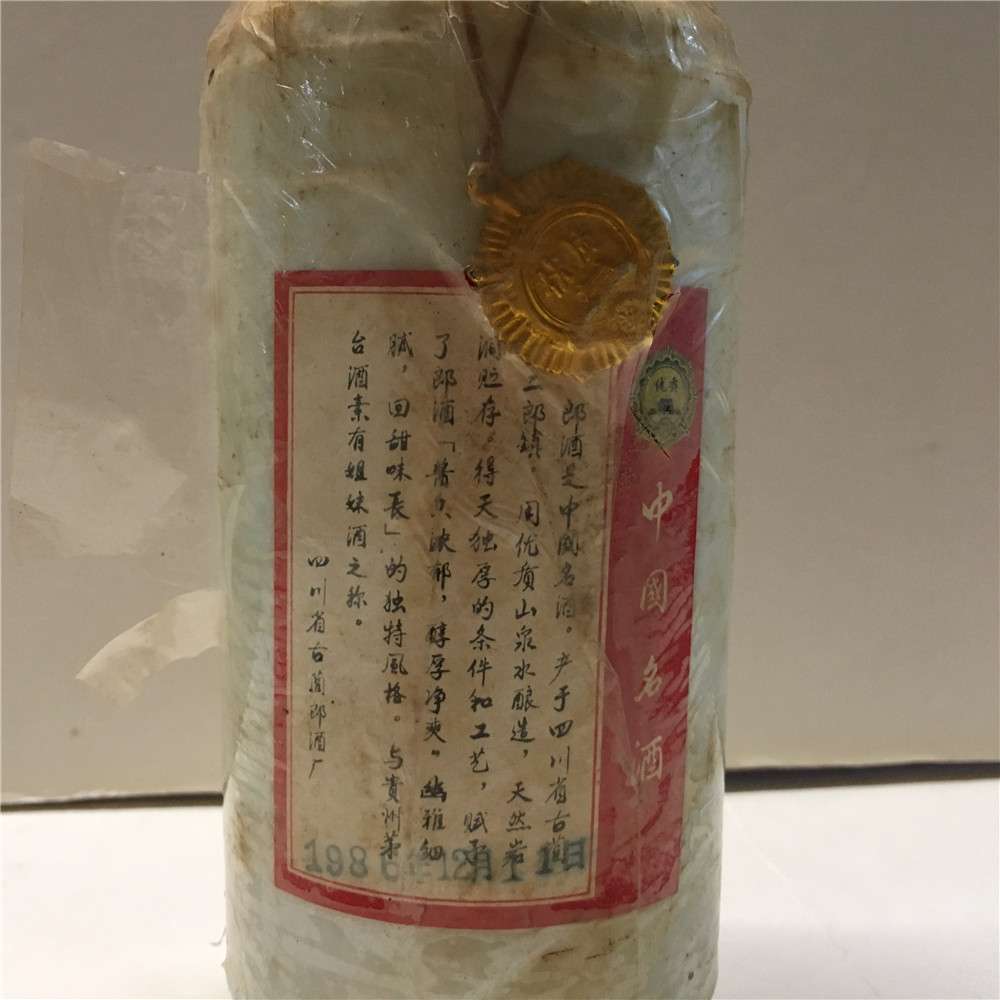 中國名酒
郎酒是中國名酒。产于四川省古蔺
二郎鎮。用优质山泉水酿造，天然岩
洞贮存。得天独厚的条件和工艺，赋予
了郎酒「醬香浓郁，醇厚净爽。幽雅细
腻，回甜味長」的独特風格。与貴州茅
台酒素有姐妹酒之称。
四川省古蔺郎酒厂
1986年12月11日